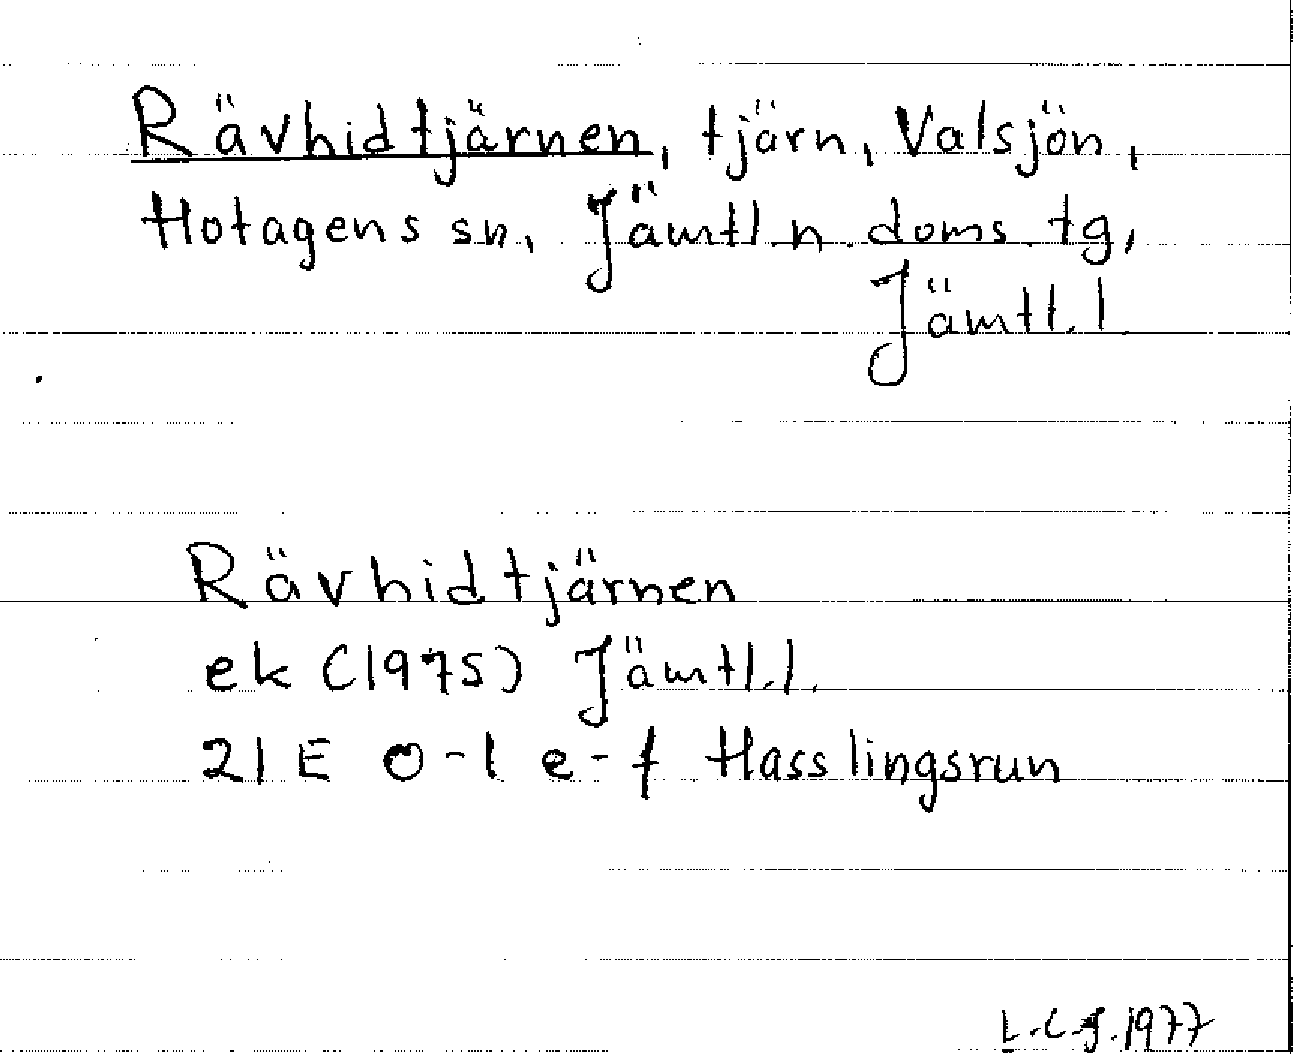 Rävhidtjärnen, tjärn, Valsjön,
Hotagens sn, Jämtl. n. doms. tg,
Jämtl. l.
Rävhidtjärnen
ek (1975) Jämtl. l.
21 E 0-1 e-f Hasslingsrun
L.C.J. 1977